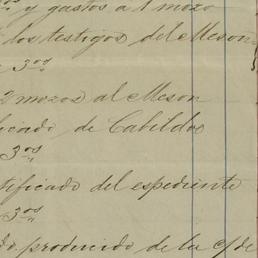 y gastos a 1 mozo
los testigos del Meson
3 os
2 mozos al Meson
icado de Cabildo
3 os
tificado del espediente
3 os
do. producido de la c/ de